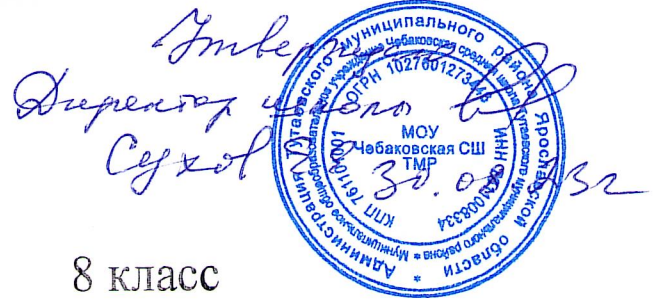 Утверждаю
Директор школы
Сухов
30.08.23г
Администрация Тутаевского муниципального района Ярославской области *
Муниципальное общеобразовательное учреждение Чебаковская средняя школа Тутаевского муниципального района *
КПП 761101001 ОГРН ИНН
МОУ
Чебаковская СШ
ТМР
8 класс